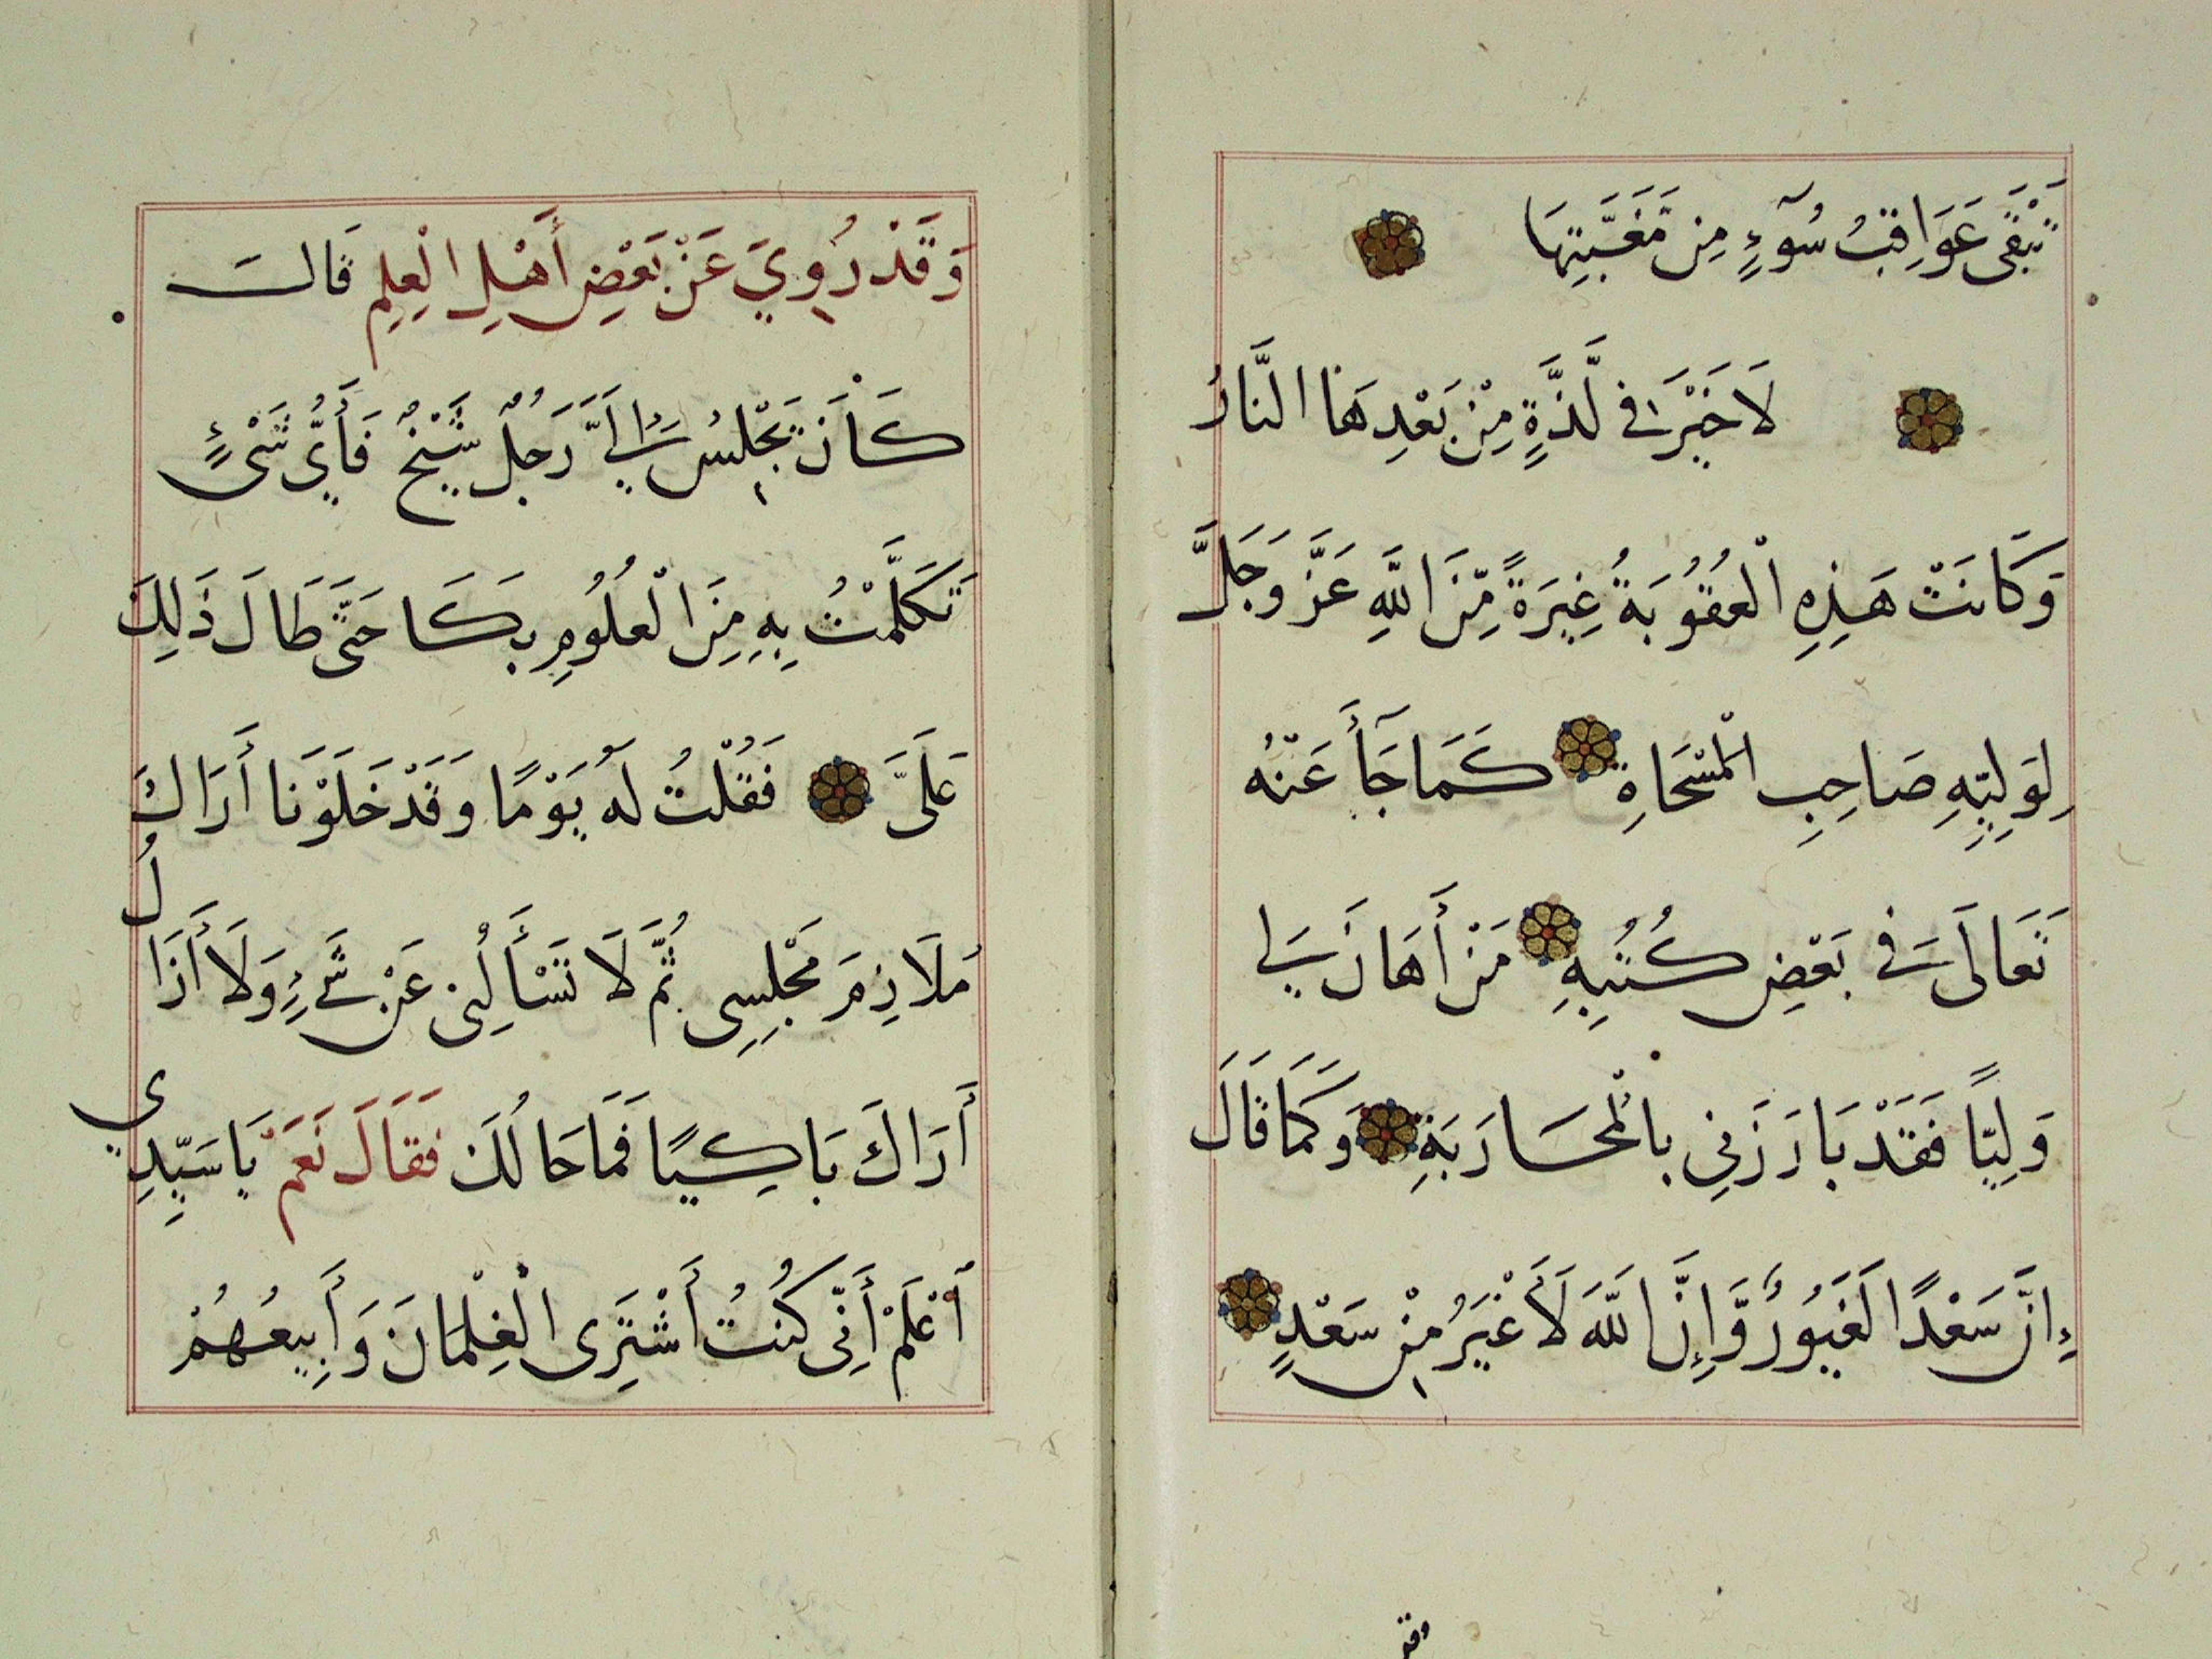 تَبْقَى عَوَاقِبُ سُوٓءٍ مِن مَّغَبَّتِهَا
لَا خَيْرَ فِى لَذَّةٍ مِنْ بَعْدِهَا النَّارُ
وَكَانَتْ هَذِهِ الْعُقُوبَةُ غِيَرَةً مِّنَ اللَّهِ عَزَّ وَجَلَّ
لِوَلِيِّهِ صَاحِبِ الْمَسْحَاةِ كَمَا جَآأَ عَنْهُ
تَعَالَى فِى بَعْضِ كُتُبِهِ مَنْ أَهَانَ لِى
وَلِيًّا فَقَدْ بَارَزَنِي بِالْمُحَارَبَةِ وَكَمَا قَالَ
إِنَّ سَعْدًا لَغَيُورٌ وَّإِنَّ اللَّهَ لَأَغْيَرُ مِنْ سَعْدٍ
وقد
وَقَدْ رُوِيَ عَنْ بَعْضِ أَهْلِ الْعِلِمِ قَالَ
كَانَ يَجْلِسُ إِلَيَّ رَجُلٌ شَيْخٌ فَأَىُّ شَىْءٍ
تَكَلَّمْتُ بِهِ مِنَ الْعُلُومِ بَكَا حَتَّى طَالَ ذَلِكَ
عَلَىَّ فَقُلْتُ لَهُ يَوْمًا وَقَدْ خَلَوْنَا أَرَاكَ
مُلَازِمَ مَجْلِسِى ثُمَّ لَا تَسْأَلُنِى عَنْ شَىْءٍ وَلَا أَزَالُ
أَرَاكَ بَاكِيًا فَمَا حَالُكَ فَقَالَ نَعَمْ يَا سَيِّدِي
اَعْلَمْ أَنِّى كُنْتُ أَشْتَرِى الْغِلْمَانَ وَأَبِيعُهُمْ